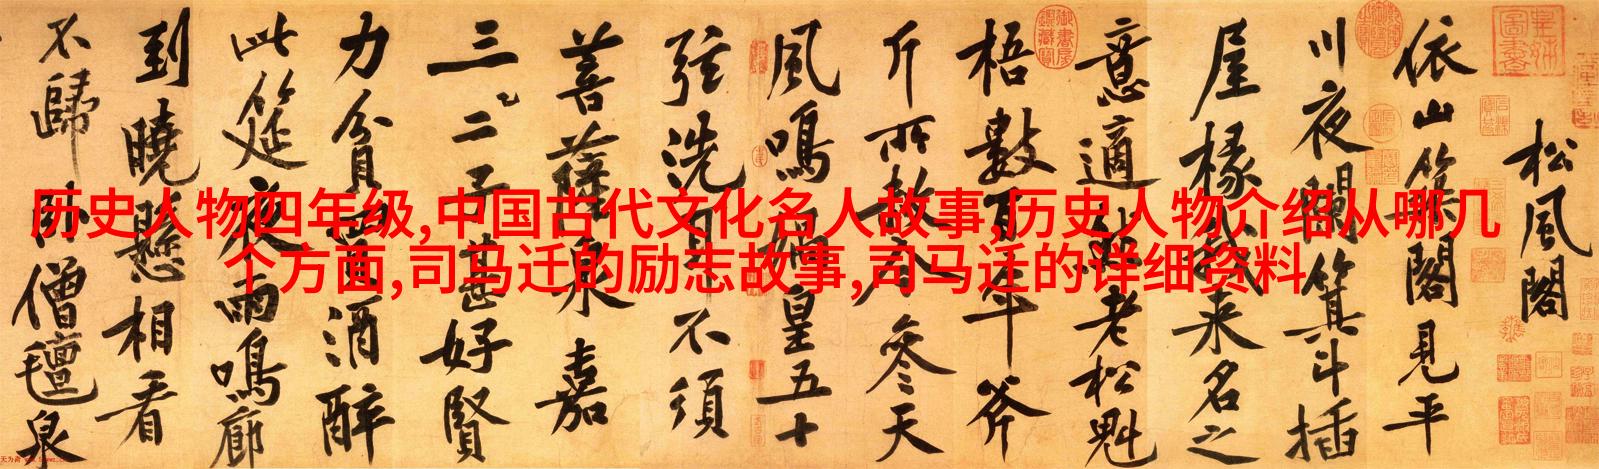 历史人物四年级,中国古代文化名人故事,历史人物介绍从哪几
个方面,司马迁的励志故事,司马迁的详细资料
松風閣
依山築閣見平
川夜闌箕斗插
屋椽我来名之
意適然老松魁
梧數百年斧
斤所赦今参天
風鳴媧皇五十
弦洗耳不須
菩薩泉嘉
三二子甚好賢
力貧買酒醉
此筵夜雨鳴廊
到曉懸相看
不歸卧僧氊泉
皇姊圖書